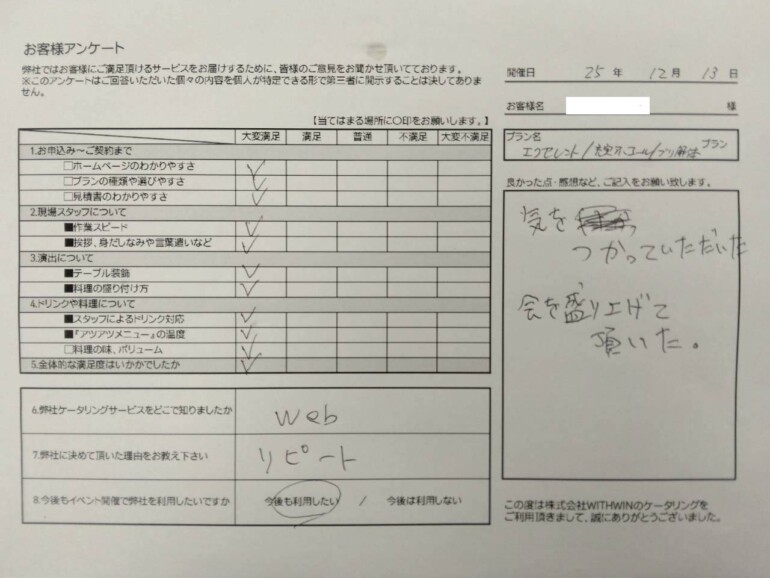 お客様アンケート
弊社ではお客様にご満足頂けるサービスをお届けするために、皆様のご意見をお聞かせ頂いております。
※このアンケートはご回答いただいた個々の内容を個人が特定できる形で第三者に開示することは決してありま
せん。
【当てはまる場所に○印をお願いします。】
大変満足 満足 普通 不満足 大変不満足
1.お申込み～ご契約まで
□ホームページのわかりやすさ
□プランの種類や選びやすさ
□見積書のわかりやすさ
2.現場スタッフについて
■作業スピード
■挨拶、身だしなみや言葉遣いなど
3.演出について
■テーブル装飾
■料理の盛り付け方
4.ドリンクや料理について
■スタッフによるドリンク対応
■『アツアツメニュー』の温度
□料理の味、ボリューム
5.全体的な満足度はいかがでしたか
6.弊社ケータリングサービスをどこで知りましたか
web
7.弊社に決めて頂いた理由をお教え下さい
リピート
8.今後もイベント開催で弊社を利用したいですか
今後も利用したい / 今後は利用しない
開催日 25 年 12 月 13 日
お客様名 様
プラン名
エクセレント/ プラン
良かった点・感想など、ご記入をお願い致します。
気を
つかっていただいた
会を盛り上げて
頂いた。
この度は株式会社WITHWINのケータリングを
ご利用頂きまして、誠にありがとうございました。